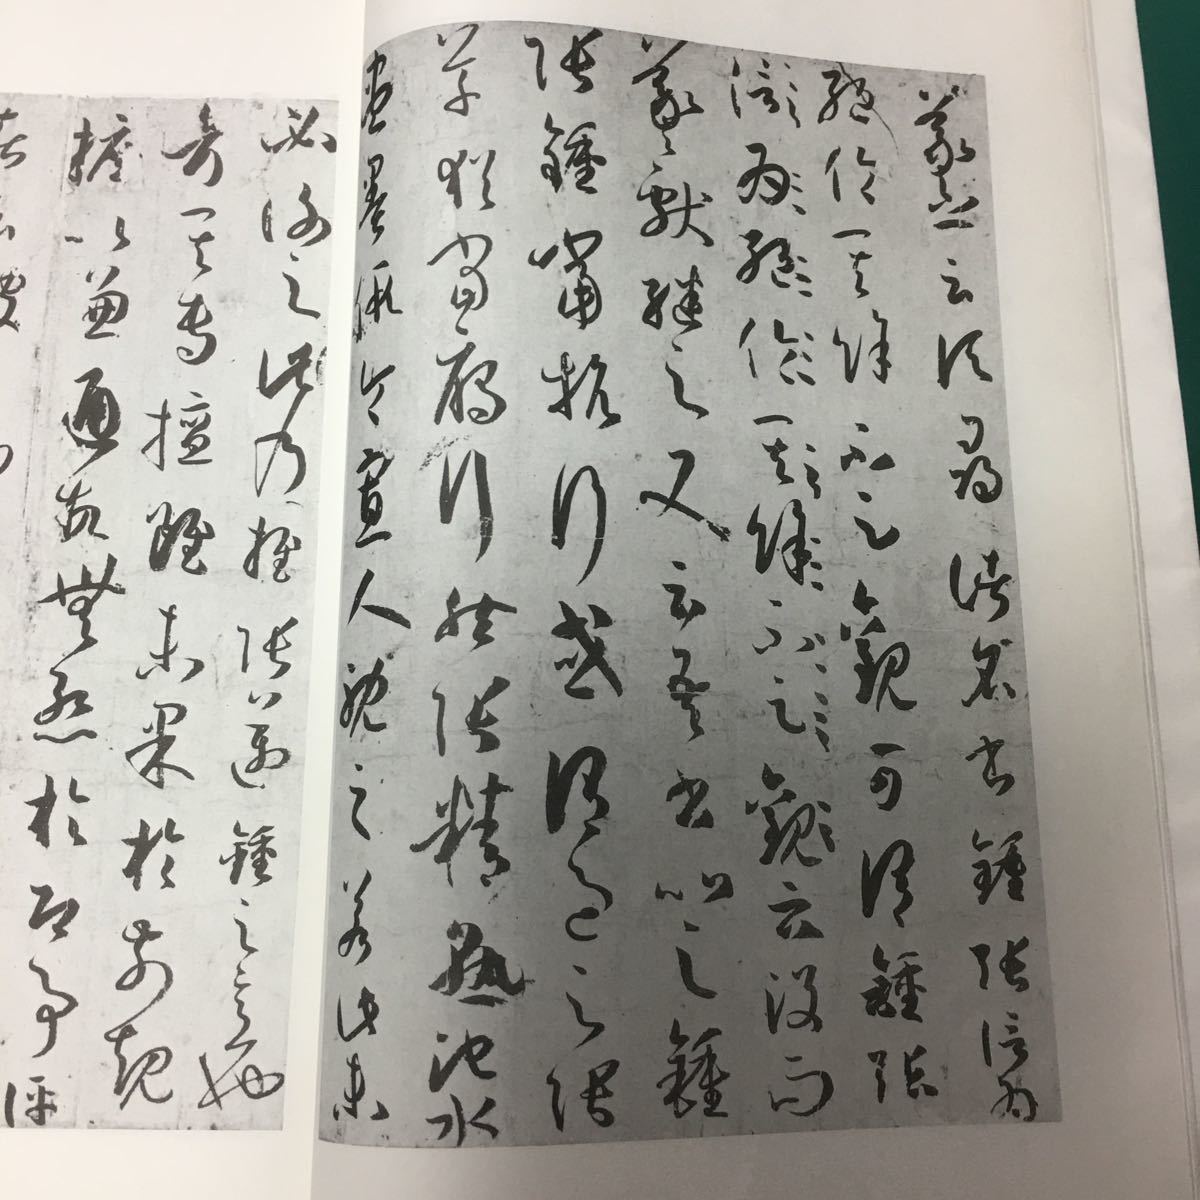 羲之云頃尋諸名書鍾張信為
絕倫其餘不足觀可謂鍾張
信為絕倫其餘不足觀云沒而
羲獻繼之又云吾書比之鍾
張鍾當抗行或謂過之張
草猶當鴈行然張精熟池水
盡墨假令寡人耽之若此未
必謝之此乃推張邁鍾之意也
考其專擅雖未果於前規
摭以兼通故無慚於即事評